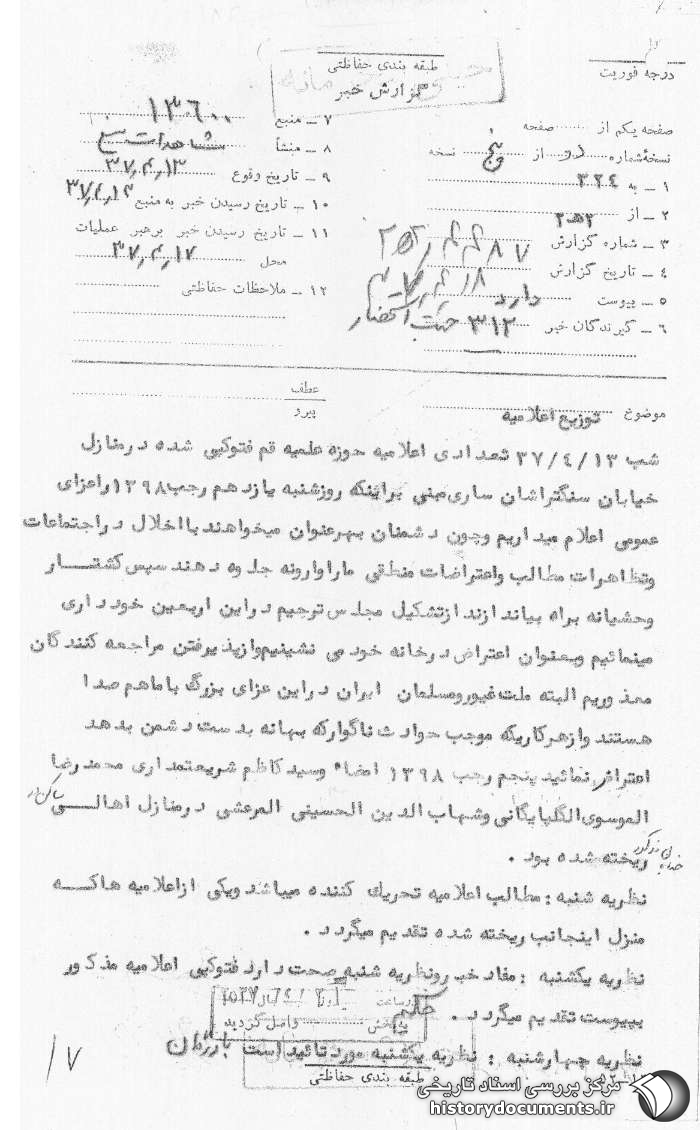 طبقه بندی حفاظتی
گزارش خبر
درجه فوریت
صفحه یکم از صفحه
نسخهٔ شماره دو از پنج نسخه
۱ ــ به ۳۲۴
۲ ــ از ۲هـ۳
۳ ــ شماره گزارش
۴ ــ تاریخ گزارش
۵ ــ پیوست دارد
۶ ــ گیرندگان خبر ۳۱۲
۷ ــ منبع ۱۳۶۰۰
۸ ــ منشأ مشاهدات
۹ ــ تاریخ وقوع ۳۷٫۴٫۱۳
۱۰ ــ تاریخ رسیدن خبر به منبع ۳۷٫۴٫۱۳
۱۱ ــ تاریخ رسیدن خبر برهبر عملیات
محل ۳۷٫۴٫۱۷
۱۲ ــ ملاحظات حفاظتی
عطف
پیرو
موضوع توزیع اعلامیه
شب ۳۷/٤/۱۳ تعدادی اعلامیه حوزه علمیه قم فتوکپی شده درمنازل
خیابان سنگتراشان ساری مبنی براینکه روزشنبه یازدهم رجب۱۳۹۸راعزای
عمومی اعلام میداریم وچون دشمنان بهرعنوان میخواهند بااخلال دراجتماعات
وتظاهرات مطالب واعتراضات منطقی ماراوارونه جلوه دهند سپس کشتـــار
وحشیانه براه بیاندازند ازتشکیل مجلس ترحیم دراین اربعین خودداری
مینمائیم وبعنوان اعتراض درخانه خود می نشینیم وازپذیرفتن مراجعه کنندگان
معذوریم البته ملت غیورومسلمان ایران دراین عزای بزرگ باماهم صدا
هستند وازهرکاریکه موجب حوادث ناگوارکه بهانه بدست دشمن بدهد
اعتراض نمائید پنجم رجب ۱۳۹۸ امضاء وسیدکاظم شریعتمداری محمدرضا
الموسوی الگلپایگانی وشهاب الدین الحسینی المرعشی درمنازل اهالـــی ساکن در
خیابان مذکور
ریخته شده بود .
نظریه شنبه : مطالب اعلامیه تحریك کننده میباشد ویکی ازاعلامیه هاکـــه
منزل اینجانب ریخته شده تقدیم میگردد .
نظریه یکشنبه : مفاد خبرونظریه شنبه صحت دارد فتوکپی اعلامیه مذکور
بپیوست تقدیم میگردد . حکیم
درساعت روز سال
به بخش واصل گردید
نظریه چهارشنبه : نظریه یکشنبه مورد تائیداست
۱۷
طبقه بندی حفاظتی
مرکز بررسی اسناد تاریخی
historydocuments.ir